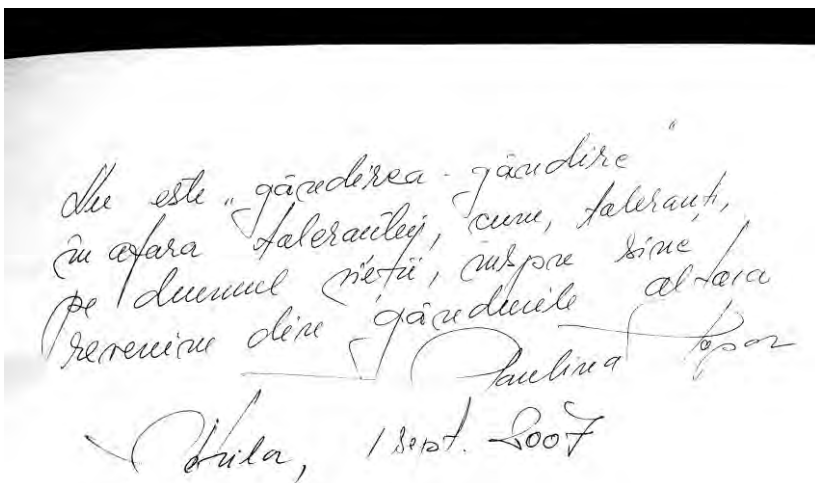 Nu este „gândirea - gândire”
în afara toleranței, cum, toleranți,
pe drumul vieții, înspre sine
revenim din gândurile altora
Paulina Popa
1 sept. 2007